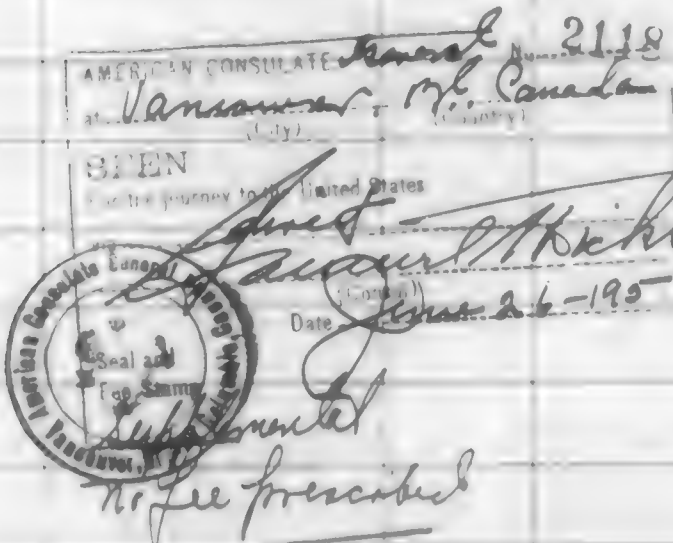 AMERICAN CONSULATE General No. 2118
at Vancouver, B.C. Canada
(City) (Country)
SEEN
For the journey to the United States
direct
(Consul)
Date June 26-195
American Consulate General
Vancouver,
Seal and
Fee Stamp
supplemental
No fee prescribed